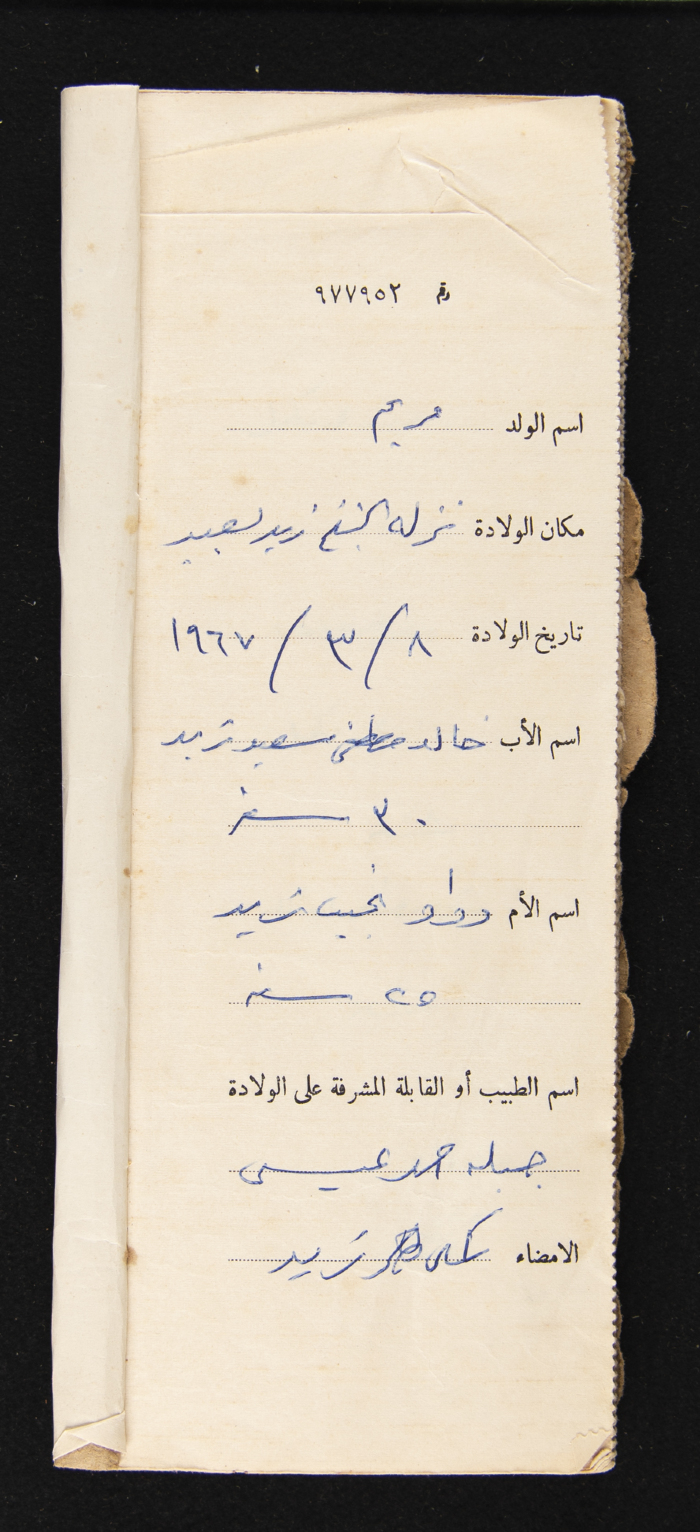 رقم ٩٧٧٩٥٢
اسم الولد مريم
مكان الولادة نزلة الشيخ زيد يعبد
تاريخ الولادة ٨ / ٣ / ١٩٦٧
اسم الأب خالد مصطفى سعيد زيد
٣٠ سنة
اسم الأم نجيب زيد
٢٥ سنه
اسم الطبيب أو القابلة المشرفة على الولادة
جميله احمد عيسى
الامضاء زيد